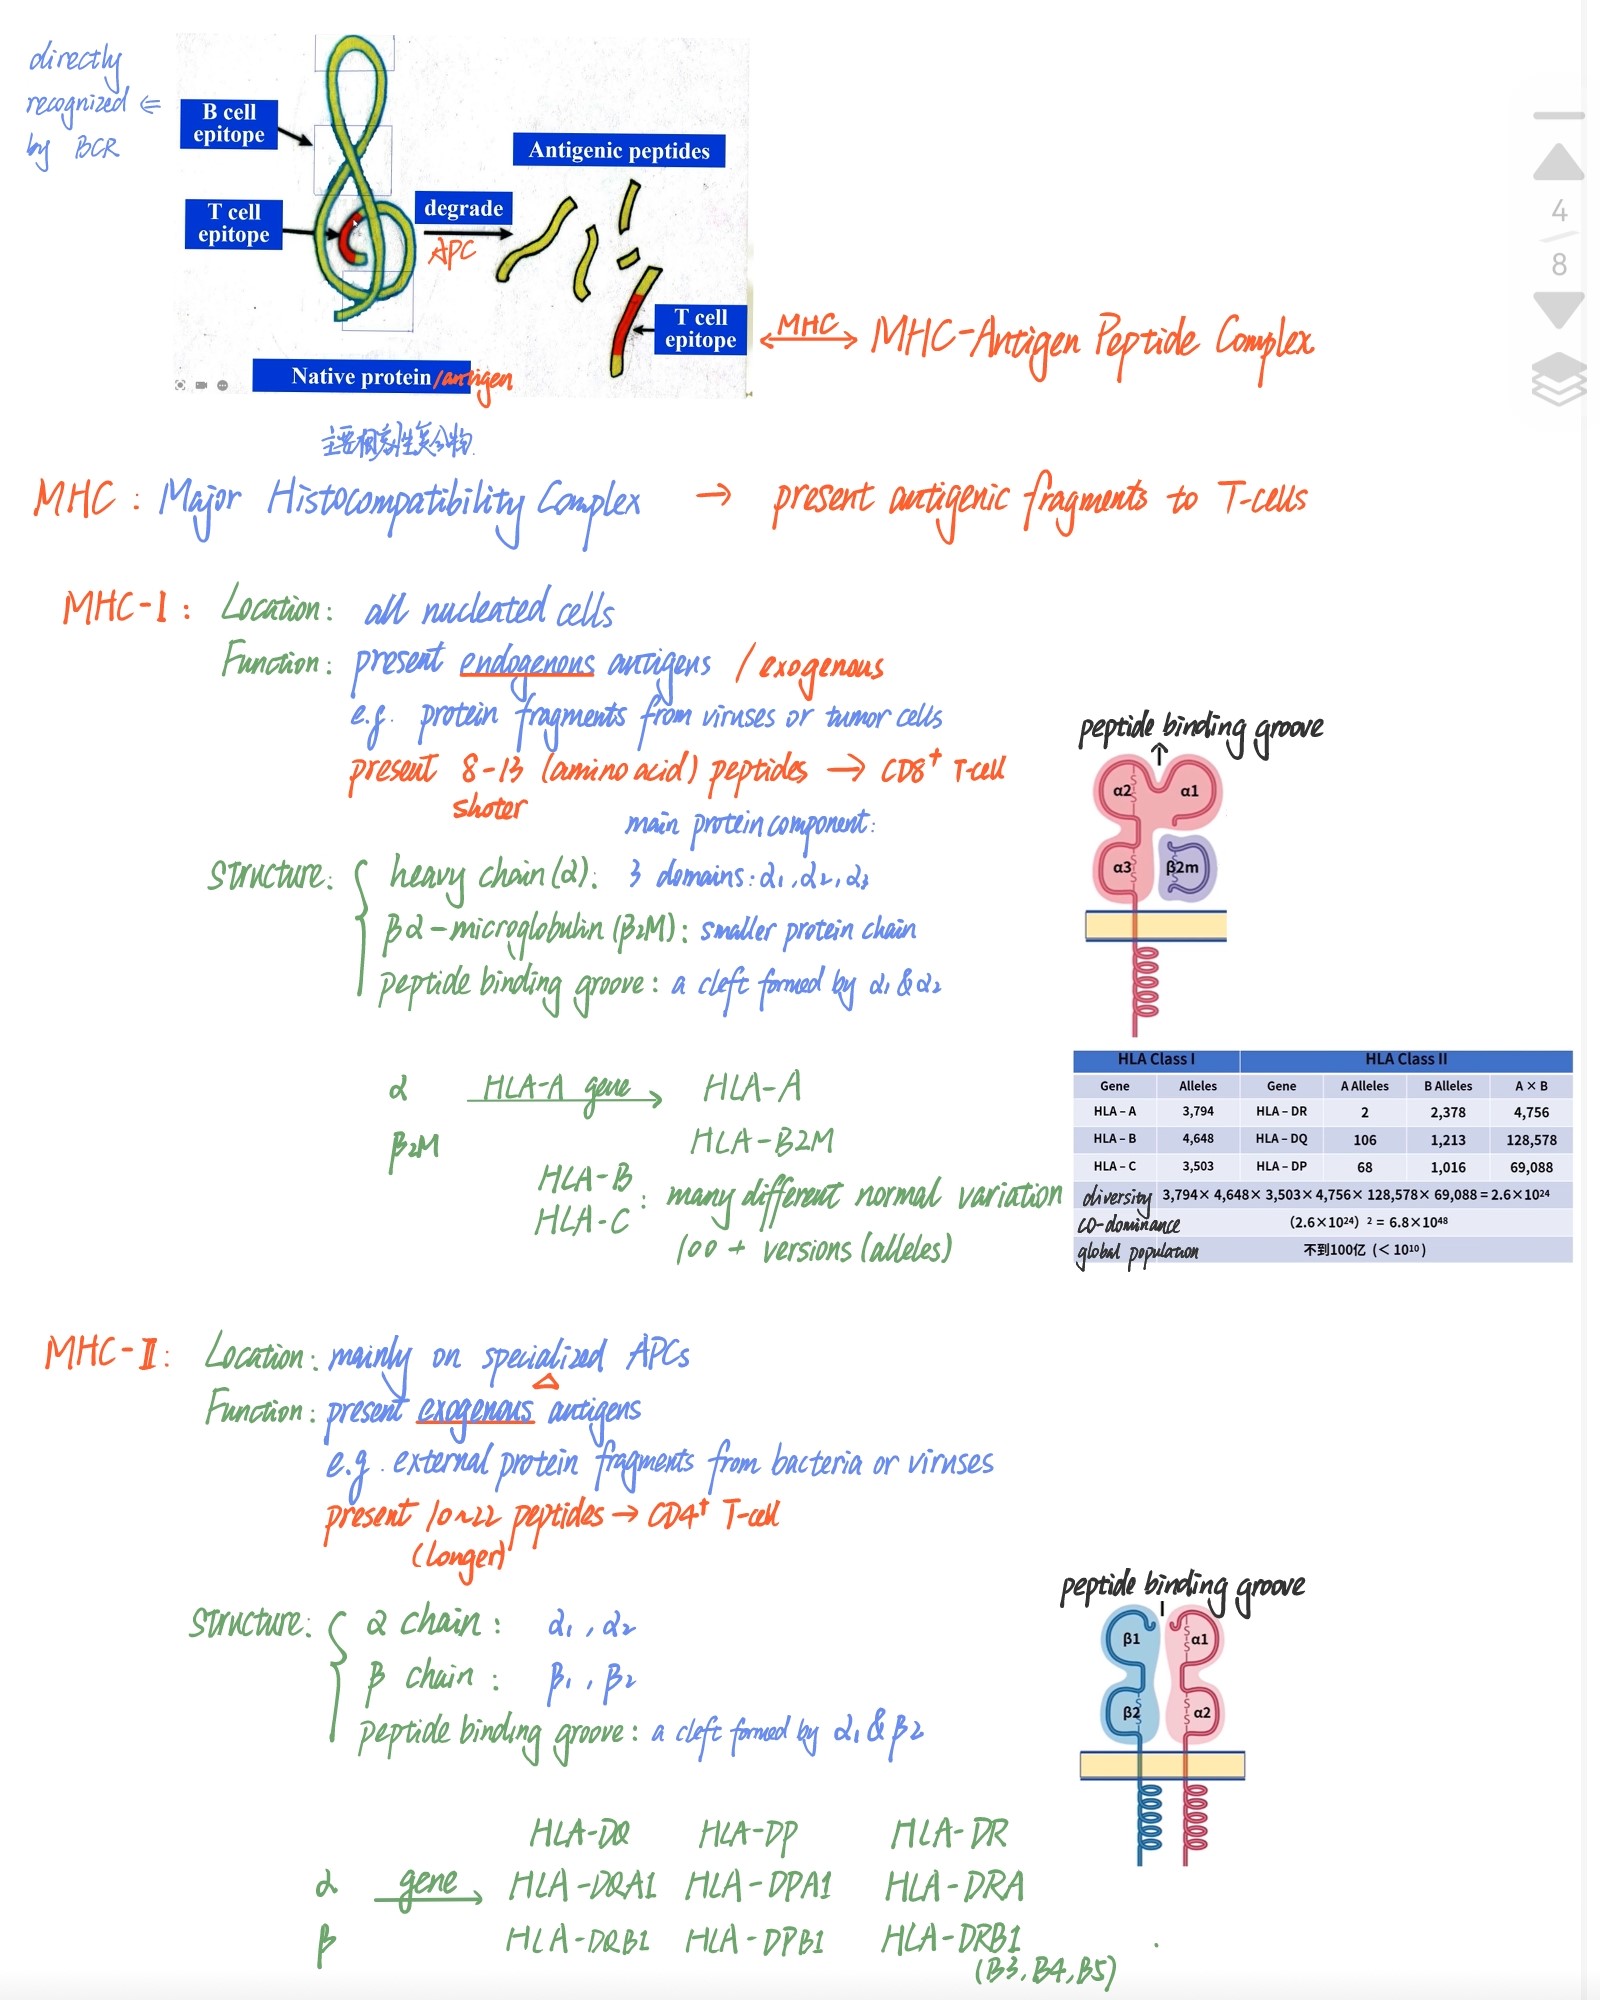 directly
recognized ⇐
by BCR
B cell
epitope
T cell
epitope
degrade
APC
Antigenic peptides
T cell
epitope
Native protein/antigen
MHC
MHC-Antigen Peptide Complex
4
8
主要相容性复合物
MHC: Major Histocompatibility Complex → present antigenic fragments to T-cells
MHC-I: Location: all nucleated cells
Function: present endogenous antigens / exogenous
e.g. protein fragments from viruses or tumor cells
present 8-13 (amino acid) peptides → CD8⁺ T-cell
shoter
main protein component:
Structure: heavy chain (α): 3 domains: α₁, α₂, α₃
βα-microglobulin (β₂M): smaller protein chain
peptide binding groove: a cleft formed by α₁ & α₂
peptide binding groove
α2
α1
α3
β2m
α HLA-A gene → HLA-A
β₂M HLA-B2M
HLA-B
HLA-C : many different normal variation
100 + versions (alleles)
HLA Class I HLA Class II
Gene Alleles Gene A Alleles B Alleles A × B
HLA – A 3,794 HLA – DR 2 2,378 4,756
HLA – B 4,648 HLA – DQ 106 1,213 128,578
HLA – C 3,503 HLA – DP 68 1,016 69,088
diversity 3,794× 4,648× 3,503×4,756× 128,578× 69,088 = 2.6×10²⁴
co-dominance （2.6×10²⁴）² = 6.8×10⁴⁸
global population 不到100亿 (< 10¹⁰)
MHC-Ⅱ: Location: mainly on specialized APCs
Function: present exogenous antigens
e.g. external protein fragments from bacteria or viruses
present 10~22 peptides → CD4⁺ T-cell
(longer)
Structure: α chain: α₁, α₂
β chain: β₁, β₂
peptide binding groove: a cleft formed by α₁ & β₂
peptide binding groove
β1
α1
β2
α2
HLA-DQ HLA-DP HLA-DR
α gene → HLA-DQA1 HLA-DPA1 HLA-DRA
β HLA-DQB1 HLA-DPB1 HLA-DRB1
(B3, B4, B5)